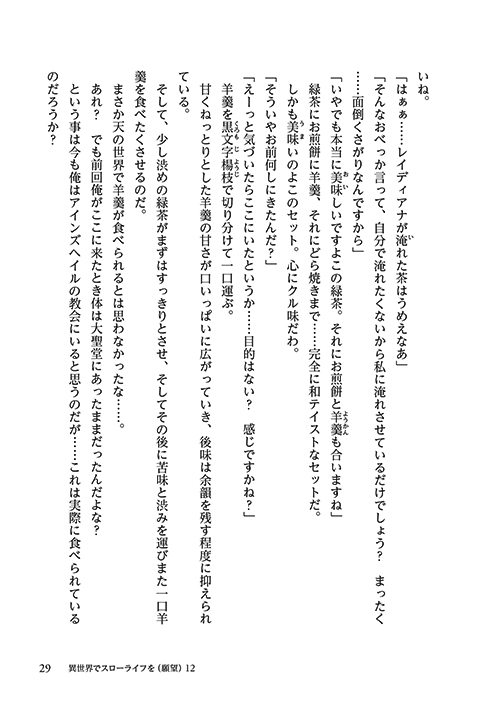 いね。
「はぁぁ……レイディアナが淹れた茶はうめえなあ」
「そんなおべっか言って、自分で淹れたくないから私に淹れさせているだけでしょう？　まったく
……面倒くさがりなんですから」
「いやでも本当に美味しいですよこの緑茶。それにお煎餅と羊羹も合いますね」
緑茶にお煎餅に羊羹、それにどら焼きまで……完全に和テイストなセットだ。
しかも美味いのよこのセット。心にクル味だわ。
「そういやお前何しにきたんだ？」
「えーっと気づいたらここにいたというか……目的はない？　感じですかね？」
羊羹を黒文字楊枝で切り分けて一口運ぶ。
甘くねっとりとした羊羹の甘さが口いっぱいに広がっていき、後味は余韻を残す程度に抑えられ
ている。
そして、少し渋めの緑茶がまずはすっきりとさせ、そしてその後に苦味と渋みを運びまた一口羊
羹を食べたくさせるのだ。
まさか天の世界で羊羹が食べられるとは思わなかったな……。
あれ？　でも前回俺がここに来たとき体は大聖堂にあったままだったんだよな？
という事は今も俺はアインズヘイルの教会にいると思うのだが……これは実際に食べられている
のだろうか？
29　異世界でスローライフを（願望）12